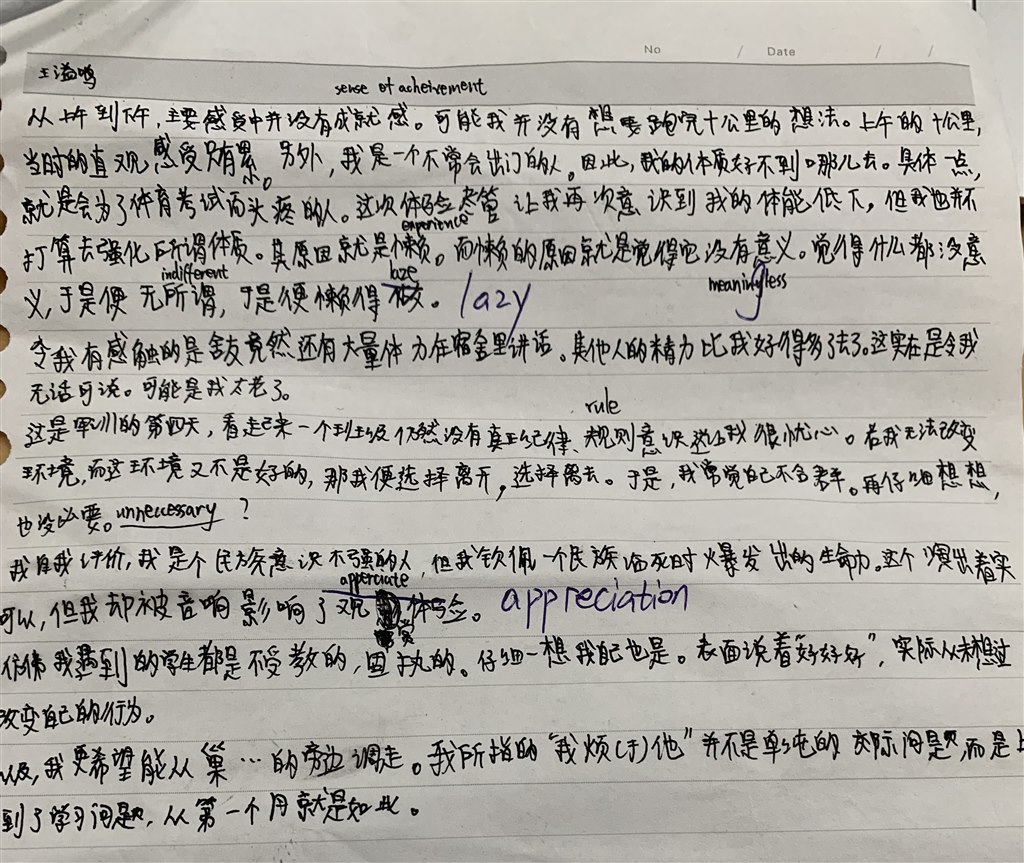 No / Date / /
王溢鸣
sense of acheivement
从上午到下午,主要感受中并没有成就感。可能我并没有想要跑完十公里的想法。上午的十公里,
当时的直观感受只有累。另外,我是一个不常会出门的人。因此,我的体质好不到哪儿去。具体一点,
就是会为了体育考试而头疼的人。这次体验尽管让我再次意识到我的体能低下,但我也并不
experience
打算去强化所谓体质。其原因就是懒。而懒的原因就是觉得它没有意义。觉得什么都没意
indifferent laze meaningless
义,于是便无所谓,于是便懒得改。 lazy
令我有感触的是舍友竟然还有大量体力在宿舍里讲话。其他人的精力比我好得多了去了。这实在是令我
无话可说。可能是我太老了。
rule
这是军训的第四天,看起来一个班级仍然没有真正纪律、规则意识,这让我很忧心。若我无法改变
环境,而这环境又不是好的,那我便选择离开,选择离去。于是,我常觉自己不合群。再仔细想想,
也没必要。unneccessary ?
我自我评价,我是个民族意识不强的人,但我钦佩一个民族临死时火暴发出的生命力。这个演出着实
apperciate
可以,但我却被音响影响了观赏体验。 appreciation
仿佛我遇到的学生都是不受教的,固执的。仔细一想我自己也是。表面说着“好好好”,实际从未想过
改变自己的行为。
以及,我更希望能从巢…的旁边调走。我所指的“我烦(于)他”并不是单纯的交际问题,而是上
到了学习问题,从第一个月就是如此。